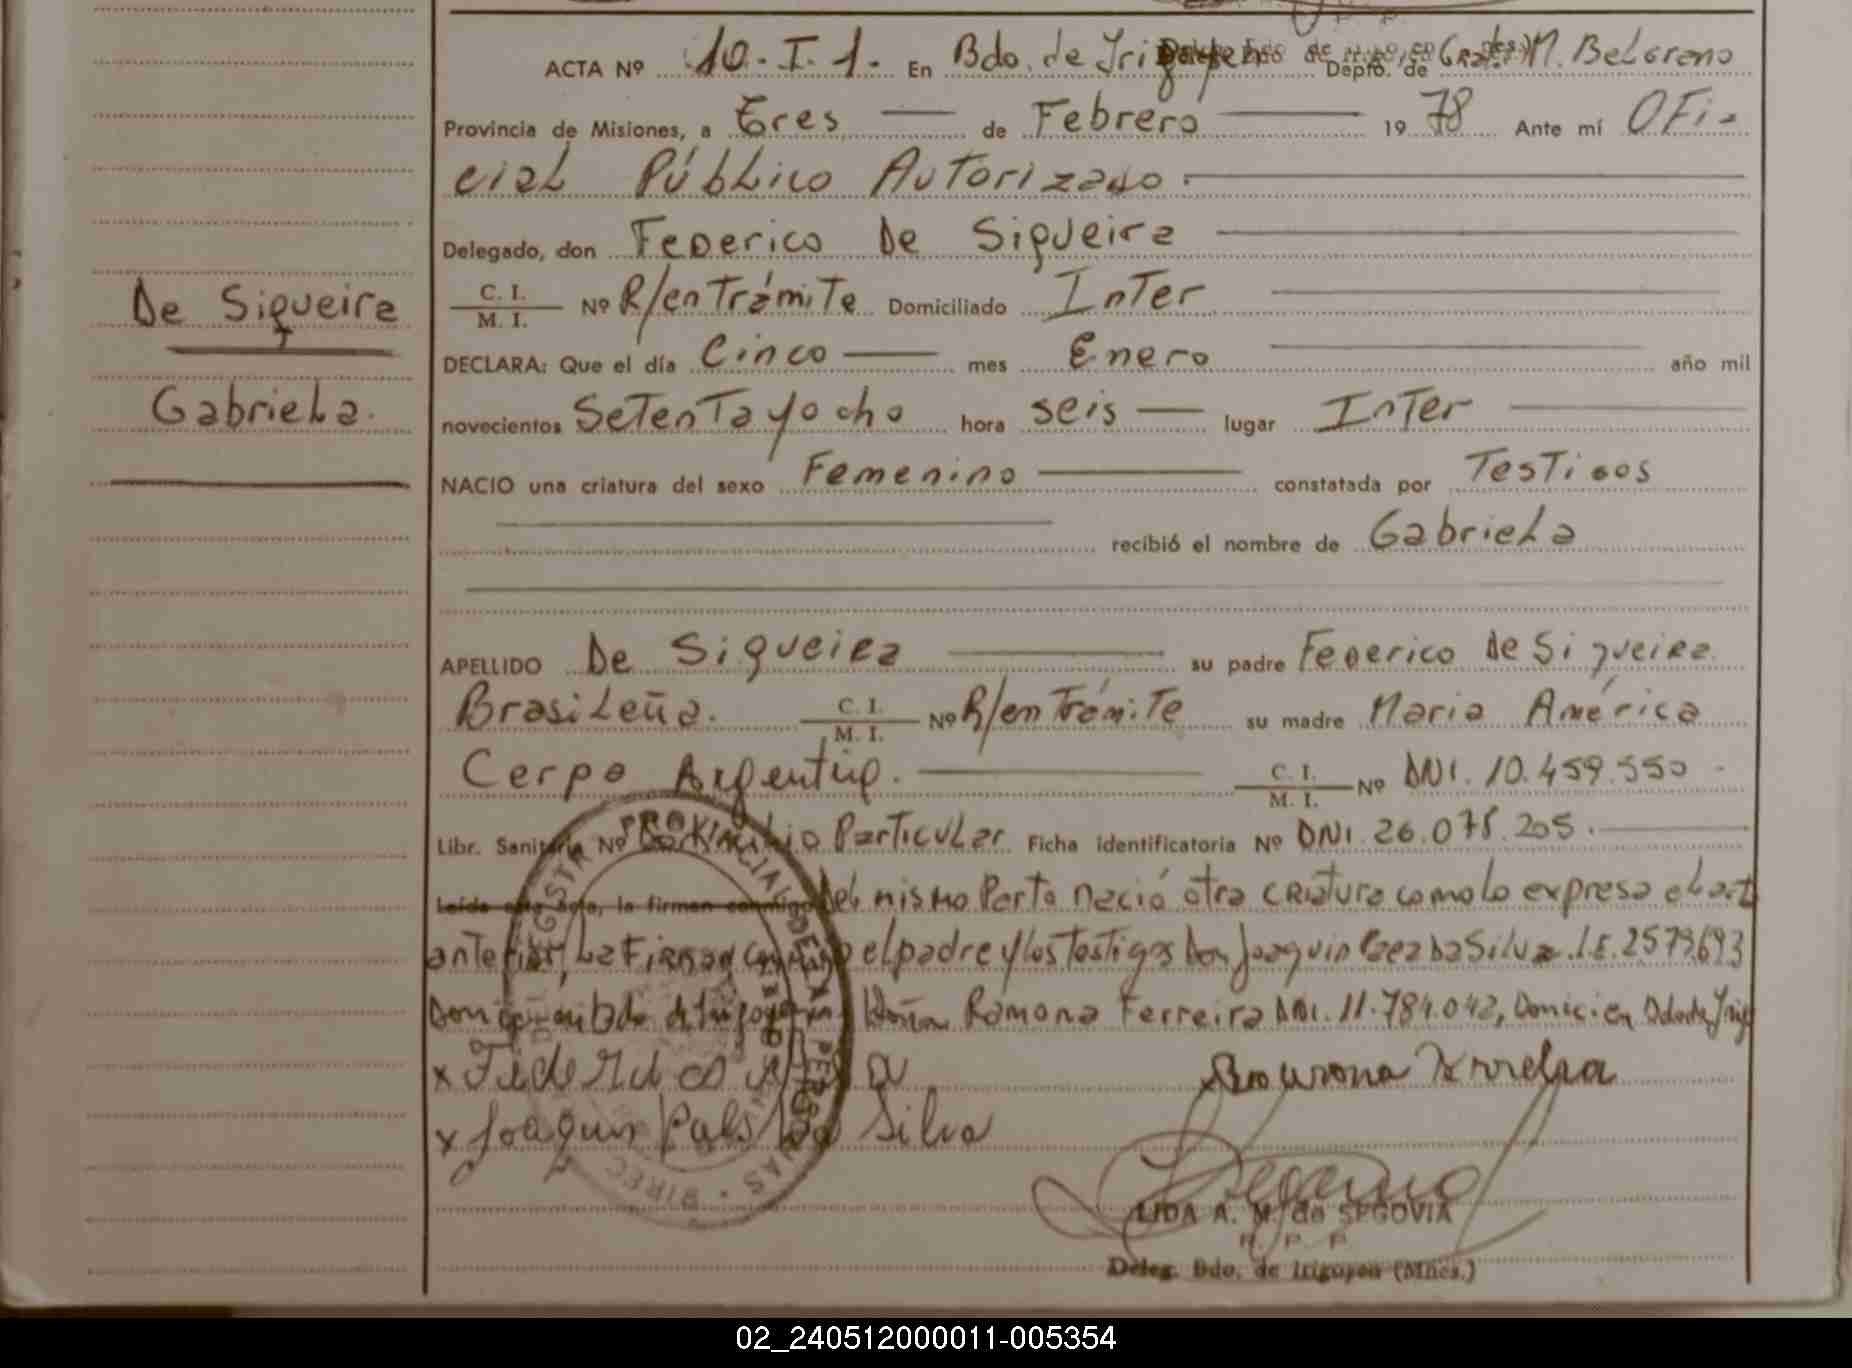 ACTA Nº 10-I-1. En Bdo. de Depto. de Gral. M. Belgrano
Provincia de Misiones, a tres de Febrero 1978 Ante mí OFi-
cial Público Autorizado.
Delegado, don Federico De Siqueira
C. I. / M. I. Nº R/en Trámite Domiciliado Inter
De Siqueira
DECLARA: Que el día Cinco mes Enero año mil
Gabriela.
novecientos Setenta y ocho hora seis lugar Inter
NACIO una criatura del sexo Femenino constatada por Testigos
recibió el nombre de Gabriela
APELLIDO De Siqueira su padre Federico De Siqueira
Brasileña. C. I. / M. I. Nº R/en Trámite su madre Maria América
Cerpo Argentina. C. I. / M. I. Nº DNI. 10.459.550
Libr. Sanitaria Nº Particular Ficha identificatoria Nº DNI. 26.078.205.
Leída esta acta, la firman conmigo Del mismo Parto nació otra criatura como lo expresa el act
anterior, La Firman conmigo el padre y los testigos Don Joaquin da Silva L.E. 2579.693
Ramona Ferreira DNI. 11.784.042, Domic. en
x
x Joaquin Silva
REGISTRO PROVINCIAL DE LAS PERSONAS
LIDA A. M. de SEGOVIA
R. P. P.
Deleg. Bdo. de Irigoyen (Mnes.)
02_240512000011-005354